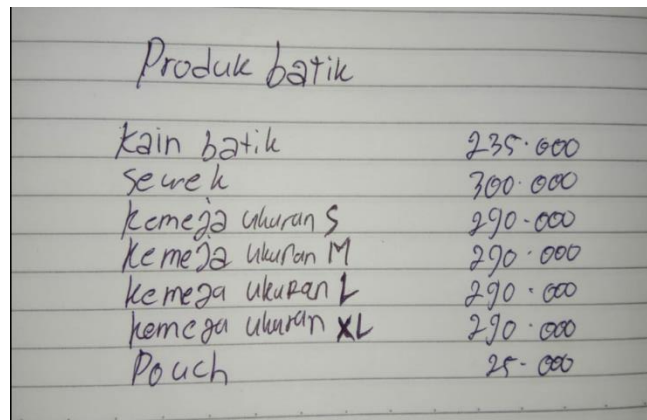 Produk batik
kain batik 235.000
sewek 300.000
kemeja ukuran S 290.000
kemeja ukuran M 290.000
kemeja ukuran L 290.000
kemeja ukuran XL 290.000
Pouch 25.000